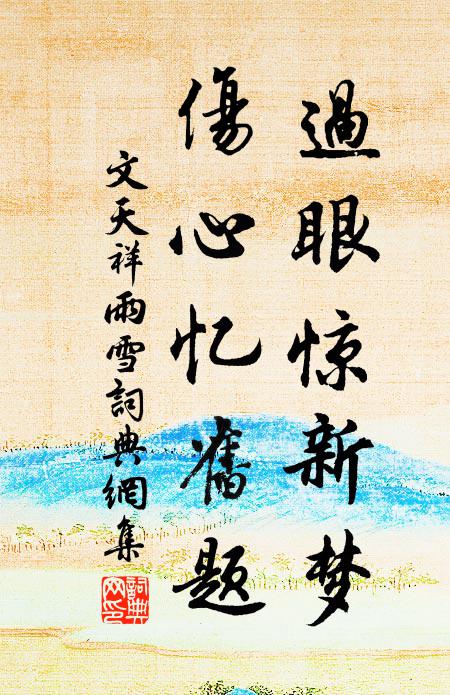 過眼惊新梦
傷心忆舊题
文天祥雨雪詞典網集
詞典网印